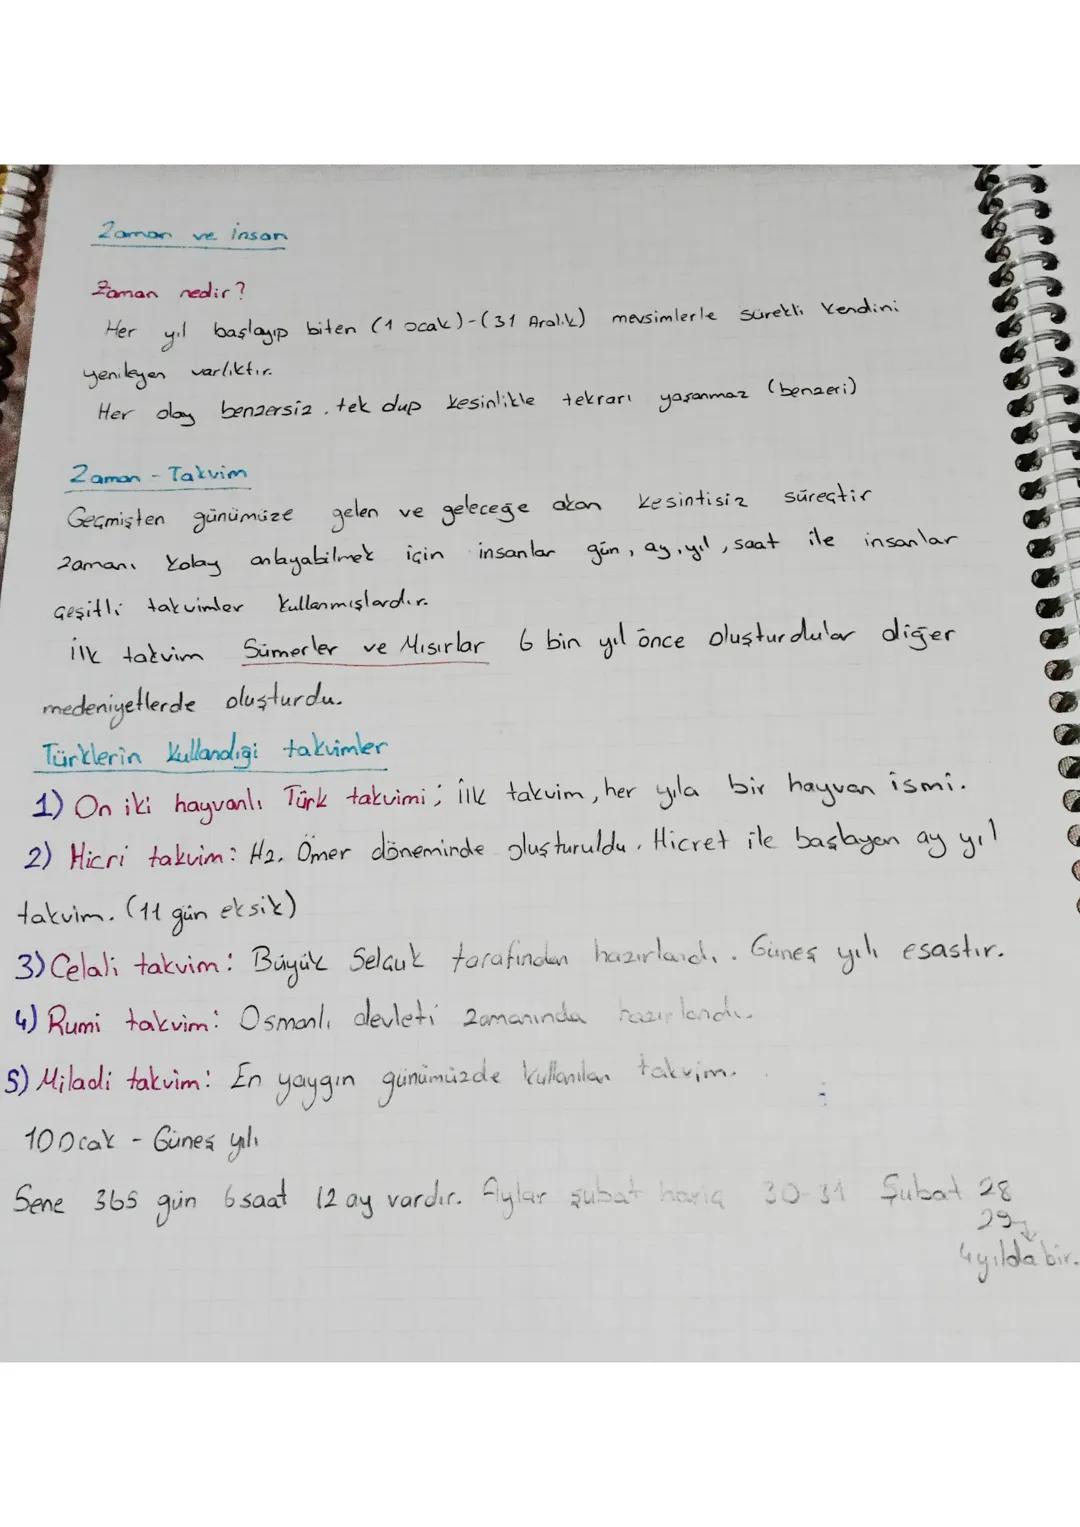 Zaman ve insan
Zaman nedir?
Her yıl başlayıp biten (1 ocak)-(31 Aralık) mevsimlerle sürekli kendini
yenileyen varlıktır.
Her olay benzersiz, tek dup kesinlikle tekrarı yaşanmaz (benzeri)
Zaman - Takvim
Geçmişten günümüze gelen ve geleceğe akan kesintisiz süreçtir
zamanı kolay anlayabilmek için insanlar gün, ay, yıl, saat ile insanlar
çeşitli takvimler kullanmışlardır.
ilk takvim Sümerler ve Mısırlar 6 bin yıl önce oluşturdular diğer
medeniyetlerde oluşturdu.
Türklerin kullandıği takvimler
1) On iki hayvanlı Türk takvimi; ilk takvim, her yıla bir hayvan ismi.
2) Hicri takvim: Hz. Ömer döneminde oluşturuldu. Hicret ile başlayan ay yıl
takvim. (11 gün eksik)
3) Celali takvim: Büyük Selçuk tarafından hazırlandı. Güneş yılı esastır.
4) Rumi takvim: Osmanlı devleti zamanında hazırlandı.
5) Miladi takvim: En yaygın günümüzde kullanılan takvim.
10 Ocak - Güneş yılı
Sene 365 gün 6 saat 12 ay vardır. Aylar şubat hariç 30-31 Şubat 28
29
4 yılda bir.